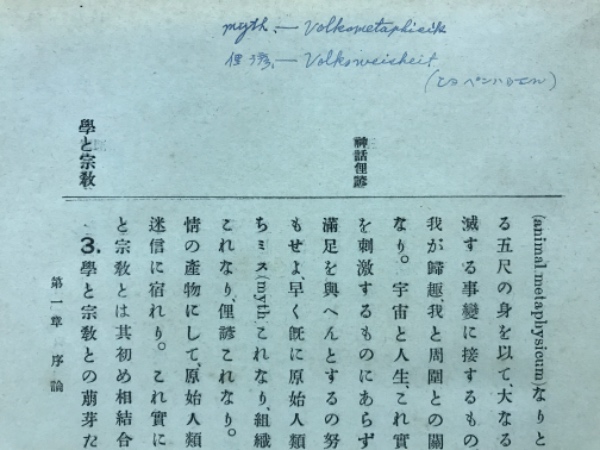 myth.— Volksmetaphisik
俚諺.— Volksweisheit
(ショペンハウエル)
神話俚諺
學と宗敎
(animal metaphysicum)なりと
る五尺の身を以て、大なる
滅する事變に接するもの、
我が歸趣、我と周圍との關
なり。宇宙と人生、これ實
を刺激するものにあらず
滿足を與へんとするの努
もせよ、早く旣に原始人類
ちミス(mythこれなり、組織
これなり、俚諺これなり。
情の產物にして、原始人類
迷信に宿れり。これ實に
と宗敎とは其初め相結合
3.學と宗敎との萠芽た
第一章 序論